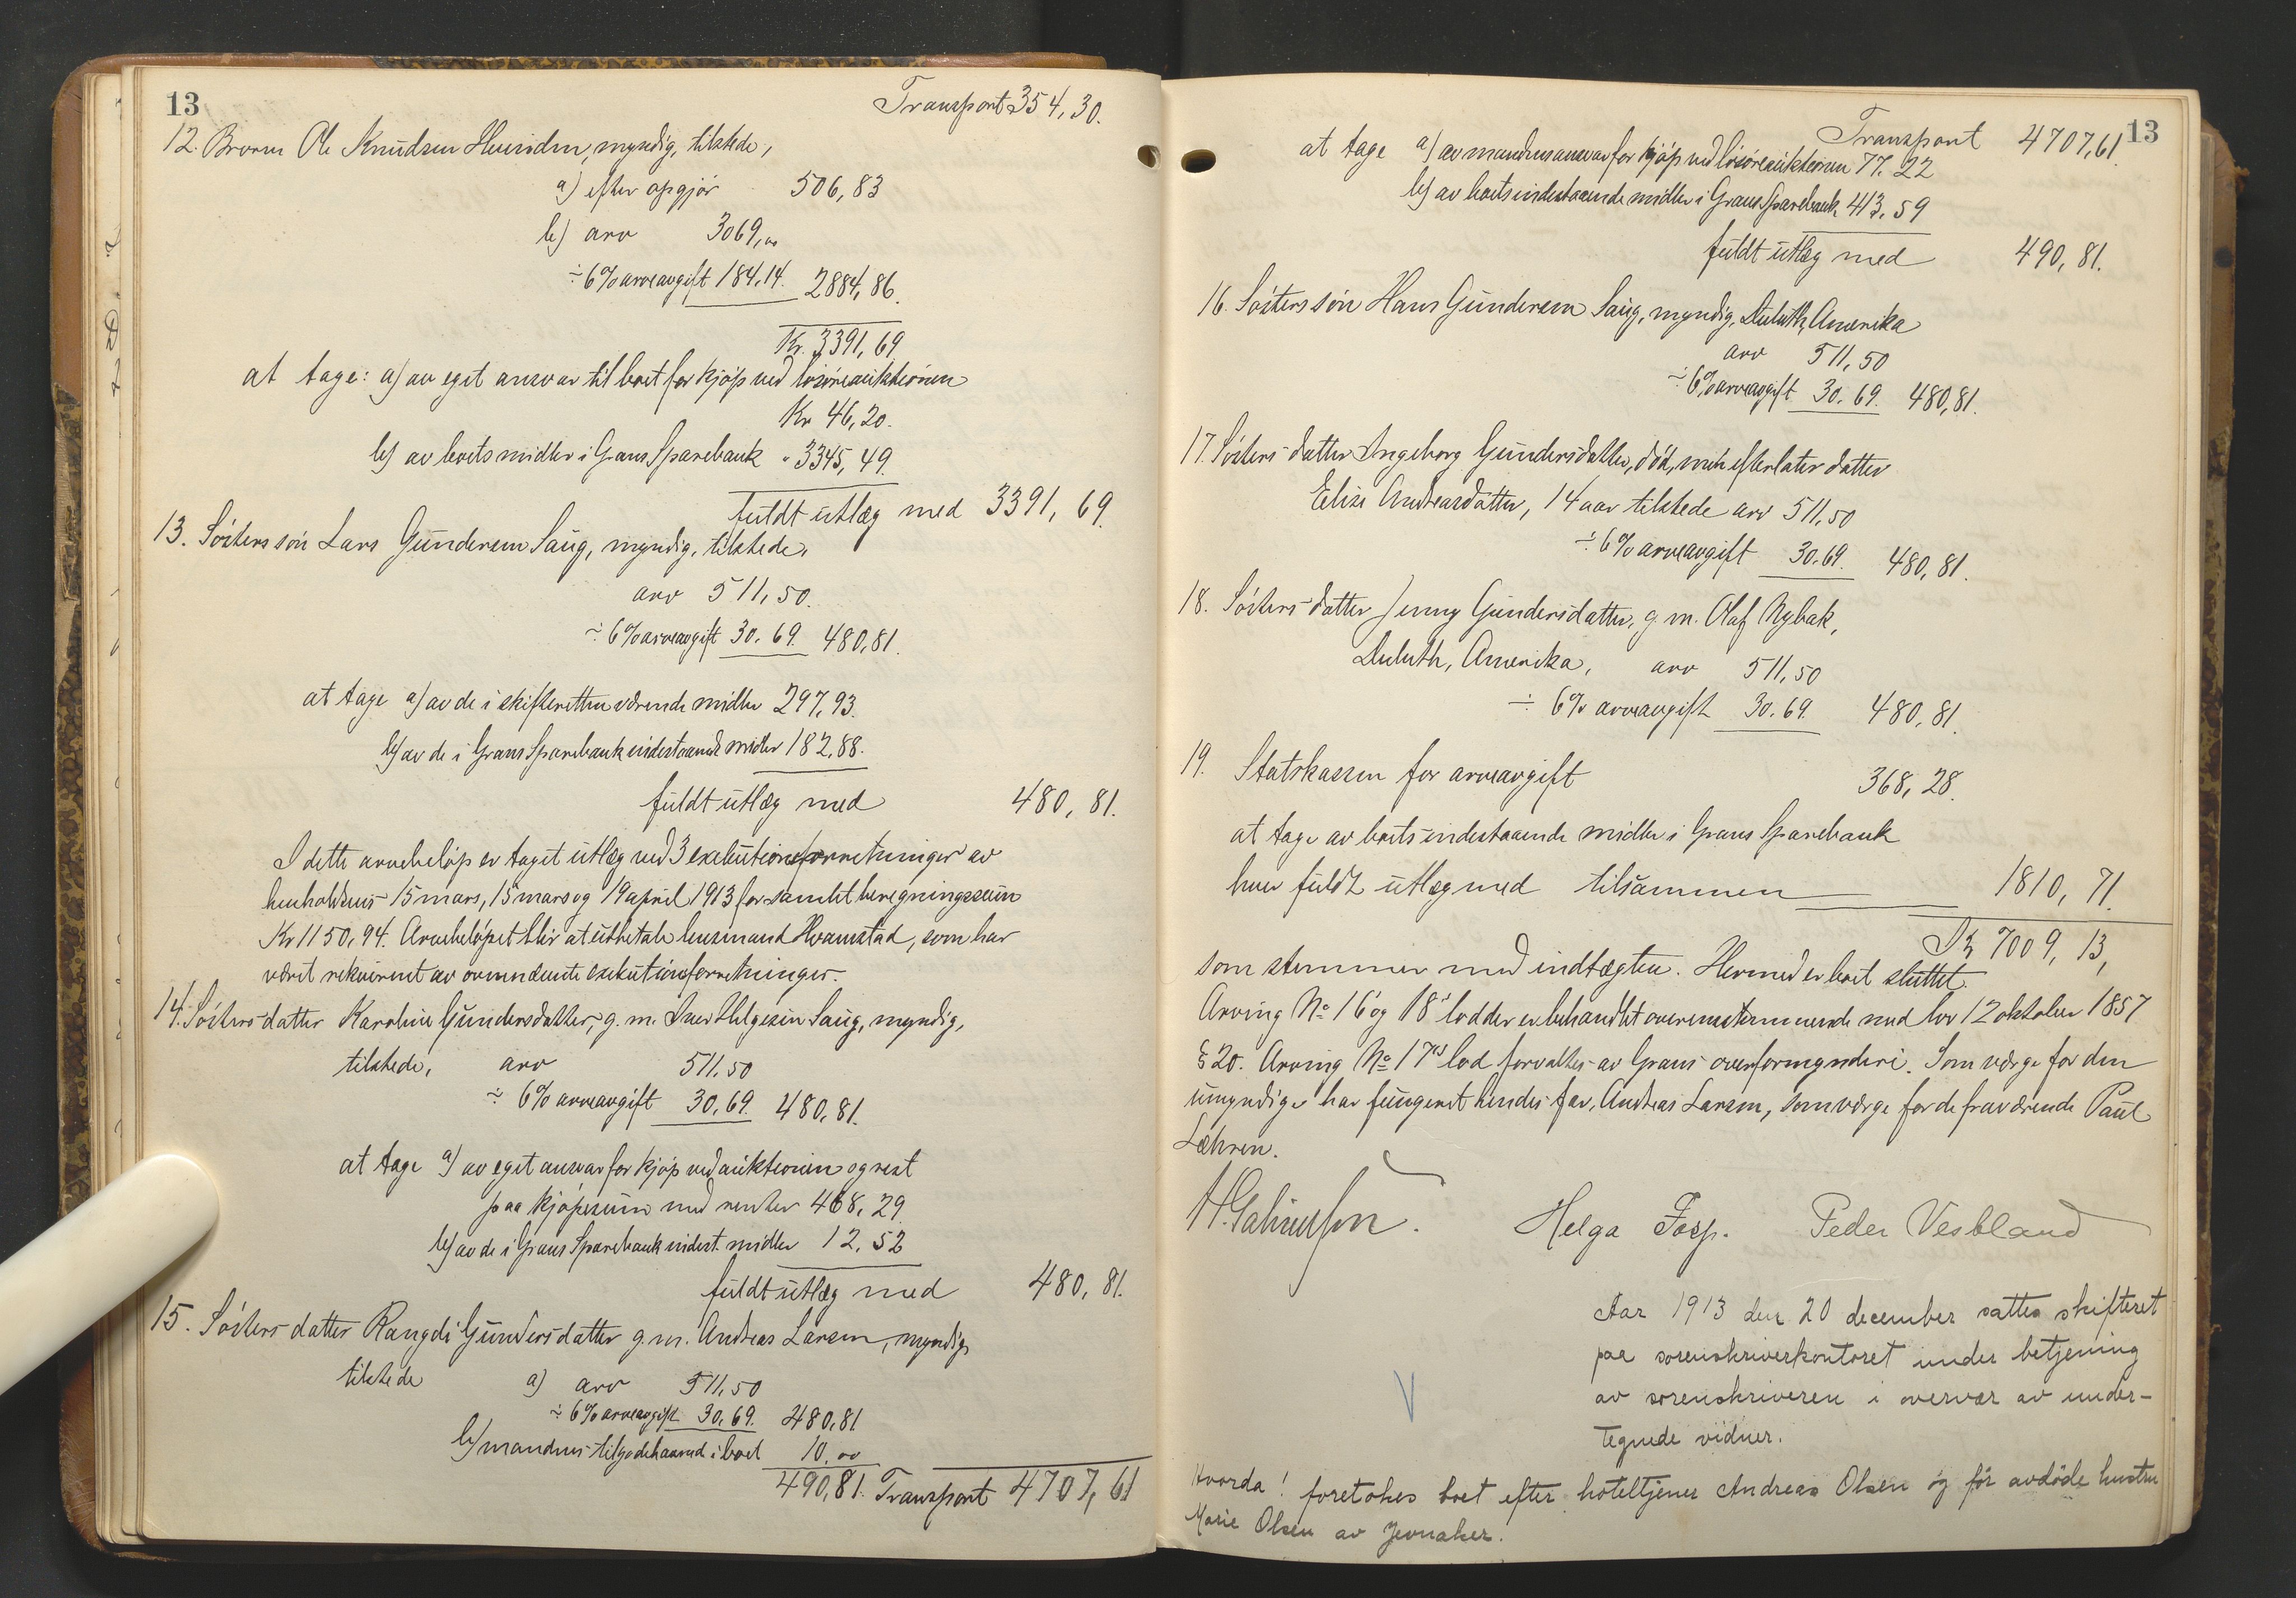 13
Transport 354,30.
12. Broren Ole Knudsen , myndig, tilstede,
a) efter opgjör 506,83
b) arv 3069,00
÷ 6% arveavgift 184,14. 2884,86.
Kr. 3391,69
at tage: a) av eget ansvar til boet for kjöp ved lösöreauktionen
Kr 46,20.
b) av boets midler i Grans Sparebank " 3345,49.
fuldt utlæg med 3391,69.
13. Sösters sön Lars Gundersen Saug, myndig, tilstede,
arv 511,50.
÷ 6% arveavgift 30,69. 480,81.
at tage a) av de i skifteretten værende midler 297,93.
b) av de i Grans Sparebank indestaaende midler 182,88.
fuldt utlæg med 480,81.
I dette arvebelöp er taget utlæg ved 3 exekutionsforretninger av
henholdsvis 15 mars, 15 mars og 19 april 1913 for samlet beregningssum
Kr 1150,94. Arvebelöpet blir at utbetale lensmand Hvamstad, som har
været rekvirent av ovennævnte exekutionsforretninger.
14. Sösters datter Karoline Gundersdatter, g. m. Iver Helgesen Saug, myndig,
tilstede, arv 511,50
÷ 6% arveavgift 30,69. 480,81.
at tage a) av eget ansvar for kjöp ved auktionen og rest
paa kjöpesum med renter 468,29
b) av de i Grans Sparebank indest. midler 12,52
fuldt utlæg med 480,81.
15. Sösters datter Rangdi Gundersdatter g. m. Andreas Larsen, myndig,
tilstede a) arv 511,50
÷ 6% arveavgift 30,69. 480,81
b) mandens tilgodehavend i boet 10,00
490,81. Transport 4707,61
13
Transport 4707,61.
at tage a) av mandens ansvar for kjöp ved lösöreauktionen 77,22
b) av boets indestaaende midler i Grans Sparebank 413,59
fuldt utlæg med 490,81.
16. Sösters sön Hans Gundersen Saug, myndig, Duluth, Amerika
arv 511,50
÷ 6% arveavgift 30,69. 480,81.
17. Sösters datter Ingeborg Gundersdatter, död, men efterlater datter
Elise Andreasdatter, 14 aar tilstede arv 511,50
÷ 6% arveavgift 30,69. 480,81.
18. Sösters datter Jenny Gundersdatter, g. m. Olaf Nybak,
Duluth, Amerika, arv 511,50
÷ 6% arveavgift 30,69. 480,81.
19. Statskassen for arveavgift 368,28.
at tage av boets indestaaende midler i Grans Sparebank
hver fuldt utlæg med tilsammen 1810,71.
7009,13,
som stemmer med indtægten. Hermed er boet sluttet.
Arving No 16 og 18s lodder er behandlet overensstemmende med lov 12 oktober 1857
§ 20. Arving No 17s lod forvaltes av Grans overformynderi. Som værge for den
umyndige har fungeret hendes far, Andreas Larsen, som værge for de fraværende Paul
Læhren.
Helga Peder Vestland
Aar 1913 den 20 december sattes skifteret
paa sorenskriverkontoret under betjening
av sorenskriveren i overvær av under-
tegnede vidner.
Hvorda! foretokes boet efter hoteltjener Andreas Olsen og för avdöde hustru
Marie Olsen av Jevnaker.